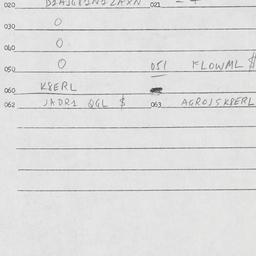 020 021
030 0
040 0
050 0 051 FLOWML $
060 K8ERL
062 JADR1 QGL $ 063 AGRO15K8ERL